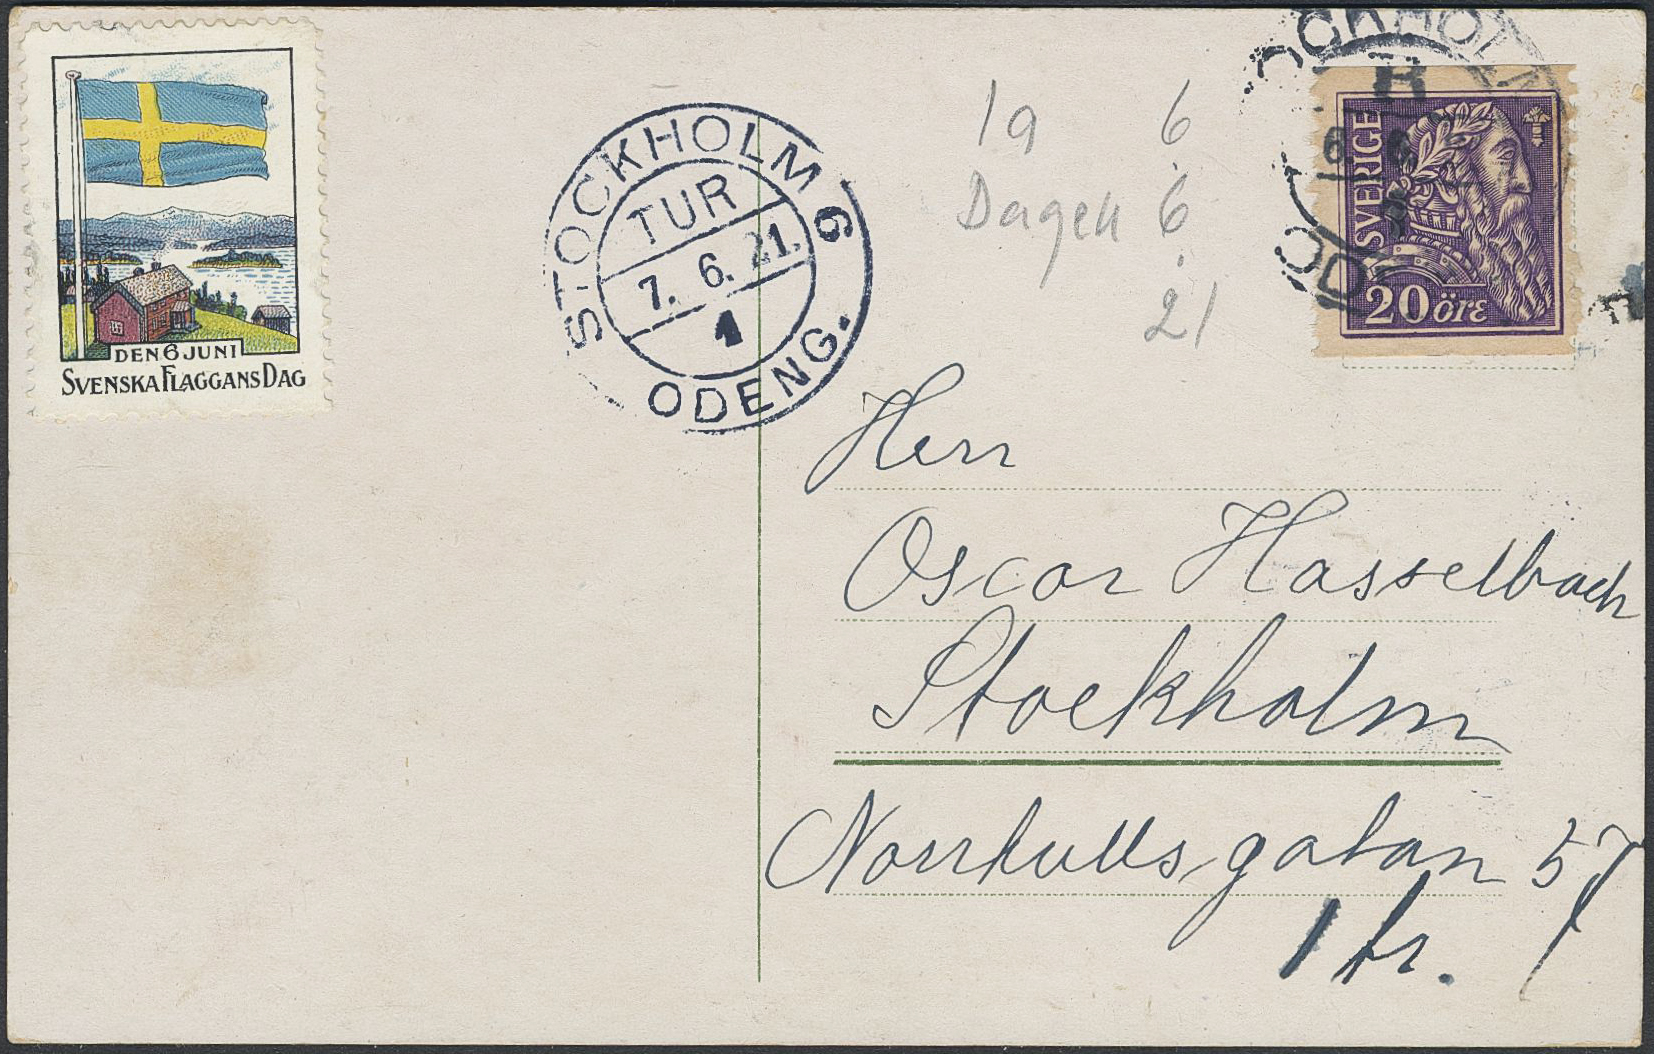 DEN 6 JUNI
SVENSKA FLAGGANS DAG
STOCKHOLM 6
TUR
7. 6. 21.
1
ODENG.
19 6
Dagen 6
21
STOCKHOLM
6. 6.
SVERIGE
20 ÖRE
Herr
Oscar Hasselbach
Stockholm
Norrtullsgatan 57
1 tr.